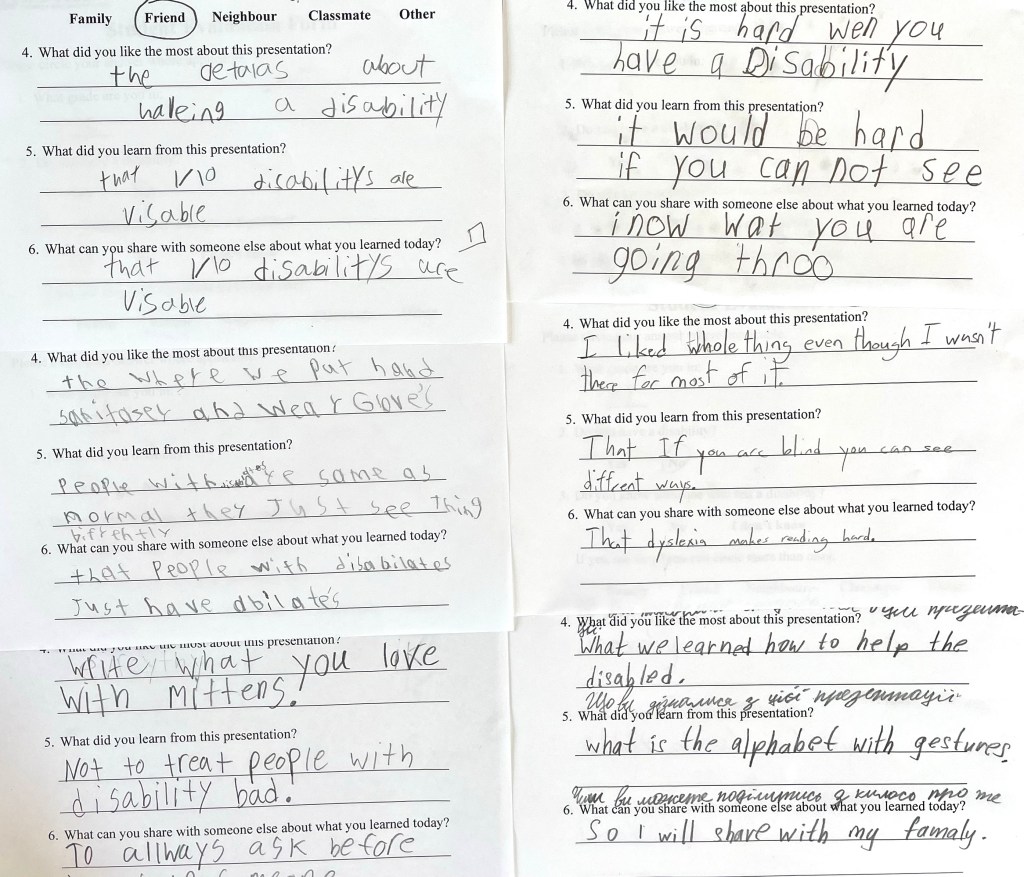 Family Friend Neighbour Classmate Other
4. What did you like the most about this presentation?
the detalas about
haveing a disability
5. What did you learn from this presentation?
that 1/10 disabilitys are
visable
6. What can you share with someone else about what you learned today?
that 1/10 disabilitys are
visable
4. What did you like the most about this presentation?
the where we put hand
sanitaser and wear Glove's
5. What did you learn from this presentation?
People with are same as
normal they Just see Thing
diffrently
6. What can you share with someone else about what you learned today?
that People with disabilates
Just have dbilate's
4. What did you like the most about this presentation?
Write what you love
with mittens!
5. What did you learn from this presentation?
Not to treat people with
disability bad!
6. What can you share with someone else about what you learned today?
To allways ask before
4. What did you like the most about this presentation?
it is hard wen you
have a Disability
5. What did you learn from this presentation?
it would be hard
if you can not see
6. What can you share with someone else about what you learned today?
i now wat you are
going throo
4. What did you like the most about this presentation?
I liked whole thing even though I wasn't
there for most of it.
5. What did you learn from this presentation?
That If you are blind you can see
diffrent ways.
6. What can you share with someone else about what you learned today?
That dyslexia makes reading hard.
4. What did you like the most about this presentation?
What we learned how to help the
disabled.
Що ви дізналися з цієї презентації
5. What did you learn from this presentation?
what is the alphabet with gestures.
Чим ви можете поділитись з кимось про те
6. What can you share with someone else about what you learned today?
So I will share with my famaly.